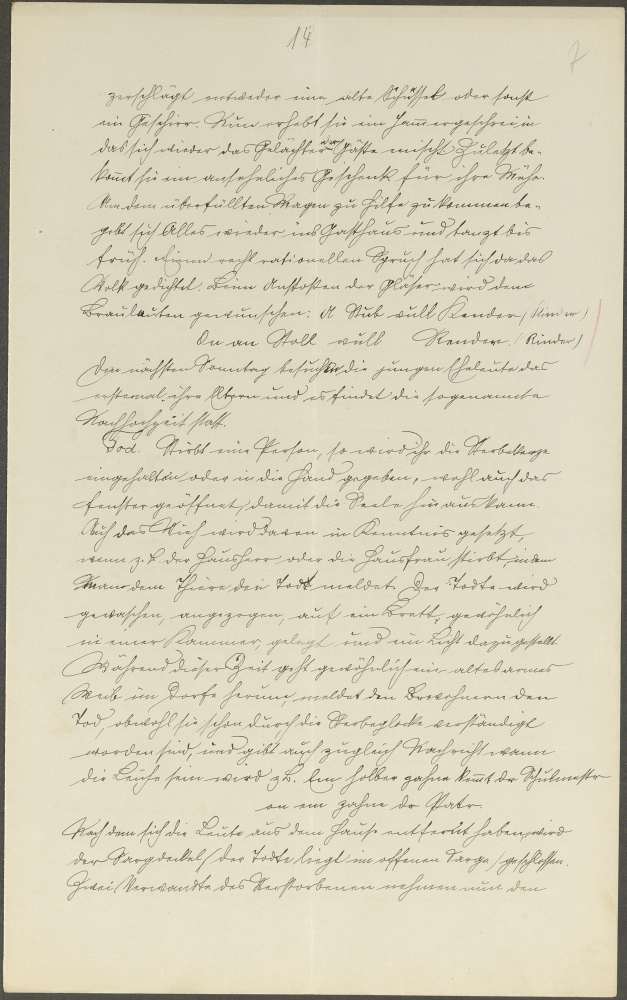 14
7
zerschlägt entweder eine alte Schüssel oder sonst
ein Geschirr. Nun erhebt sie ein Jammergeschrei in
das sich wieder das Gelächter der Gäste mischt. Zuletzt be-
kommt sie ein ansehnliches Geschenk für ihre Mühe.
Um dem überfüllten Magen zu Hilfe zu kommen be-
gibt sich Alles wieder ins Gasthaus und tanzt bis
früh. Einen recht rationellen Spruch hat sich da das
Volk gedichtet. Beim Anstoßen der Gläser wird dem
Brautleuten gewunschen: A Stub vull Kender (Kinder)
On an Stoll vull Render. (Rinder)
Den nächsten Sonntag besuchen die jungen Eheleute das
erstemal ihre Eltern und es findet die sogenannte
Nachhochzeit statt.
Tod. Stirbt eine Person, so wird ihr die Sterbekerze
eingehalten oder in die Hand gegeben, wohl auch das
Fenster geöffnet, damit die Seele hinaus kann.
Auch das Vieh wird davon in Kenntnis gesetzt,
wenn z. B. der Hausherr oder die Hausfrau stirbt, indem
Man dem Thiere den Tod meldet. Der Todte wird
gewaschen, angezogen, auf ein Brett, gewöhnlich
in einer Kammer, gelegt und ein Licht dazugestellt.
Während dieser Zeit geht gewöhnlich ein altes armes
Weib im Dorfe herum, meldet den Bewohnern den
Tod, obwohl sie schon durch die Sterbeglocke verständigt
worden sind, und gibt auch zugleich Nachricht wann
die Leiche sein wird z.B. Em holber zahne kimt dr Schulmestr
on em zahne dr Patr.
Nach dem sich die Leute aus dem Hause entfernt haben, wird
der Sargdeckel (der Todte liegt im offenen Sarge) geschlossen.
Zwei Verwandte des Verstorbenen nehmen nun den